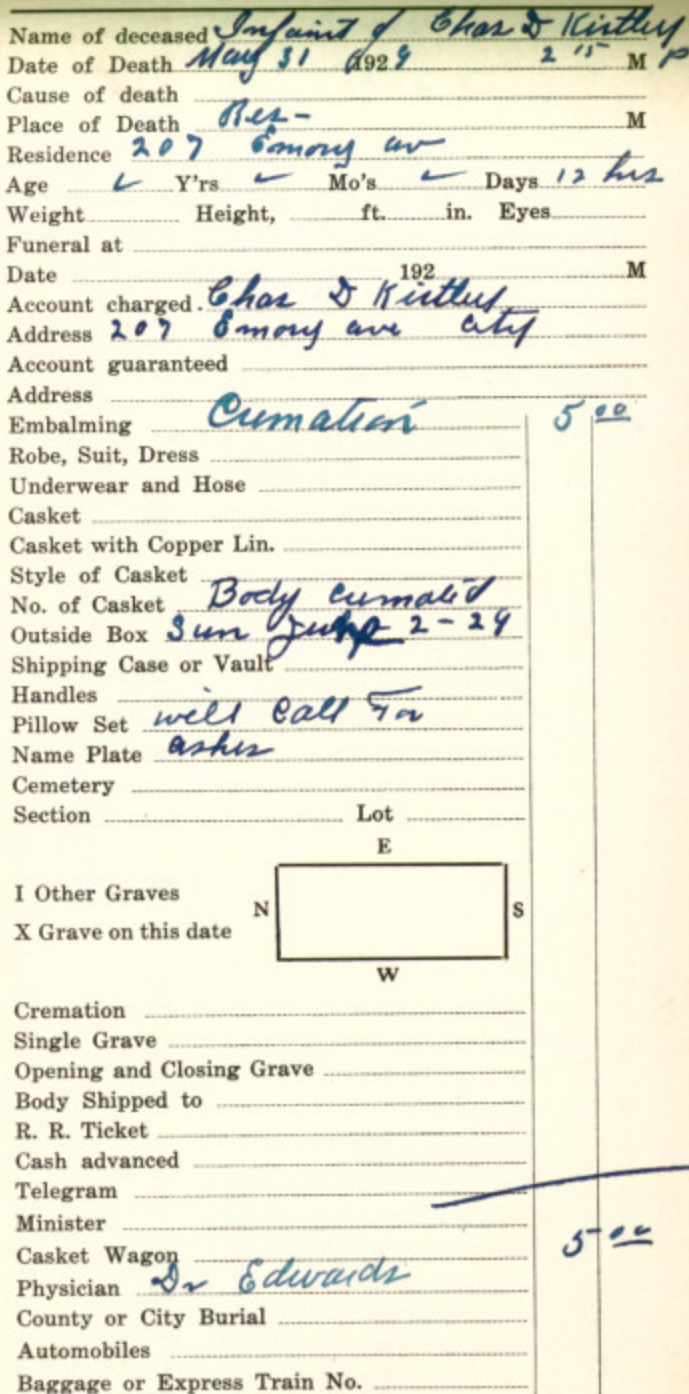 Name of deceased Infaint of Chas D Kirtley
Date of Death May 31 1929 2 15 M P
Cause of death
Place of Death Res- M
Residence 207 Emory av
Age ✓ Y'rs ✓ Mo's ✓ Days 12 hrs
Weight Height, ft. in. Eyes
Funeral at
Date 192 M
Account charged. Chas D Kirtley
Address 207 Emory ave City
Account guaranteed
Address
Embalming Cumation 5 00
Robe, Suit, Dress
Underwear and Hose
Casket
Casket with Copper Lin.
Style of Casket
No. of Casket Body Cumated
Outside Box Sun 2-29
Shipping Case or Vault
Handles
Pillow Set will Call For
Name Plate ashes
Cemetery
Section Lot
E
I Other Graves
N S
X Grave on this date
W
Cremation
Single Grave
Opening and Closing Grave
Body Shipped to
R. R. Ticket
Cash advanced
Telegram
Minister
Casket Wagon 5 00
Physician Dr Edwards
County or City Burial
Automobiles
Baggage or Express Train No.